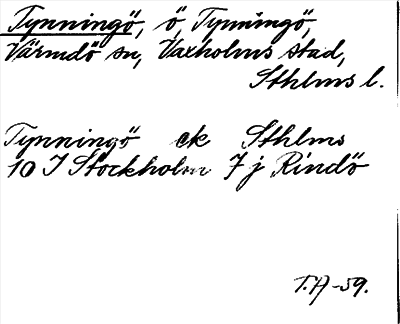 Tynningö, ö, Tynningö,
Värmdö sn, Vaxholms stad,
Sthlms l.
Tynningö ek Sthlms
10 I Stockholm 7 j Rindö
T.H -59.